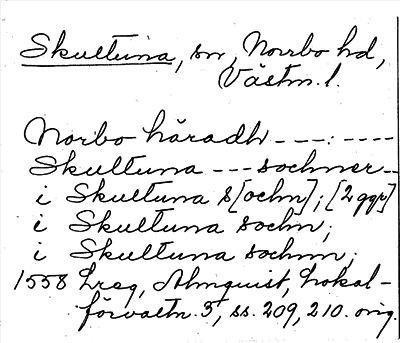 Skultuna, sn, Norrbo hd,
Västm. l.
Norbo häradh ---:----
Skultuna --- sochner --
i Skultuna s[ochn]; [2 ggr]
i Skultuna sochn;
i Skultuna sochnn;
1558 Lreg, Almquist, Lokal-
förvaltn. 3, ss. 209, 210. orig.